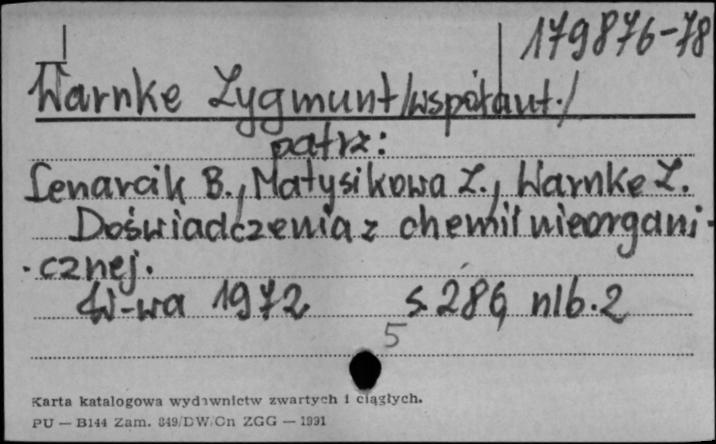 179876-78
I
Warnke Zygmunt /współaut./
patrz:
Lenarcik B., Matysikowa Z., Warnke Z.
Doświadczenia z chemii nieorgani-
-cznej.
W-wa 1972 s. 286, nlb. 2
5
Karta katalogowa wydawnictw zwartych i ciągłych.
PU — B144 Zam. 849/DW/Cn ZGG — 1991